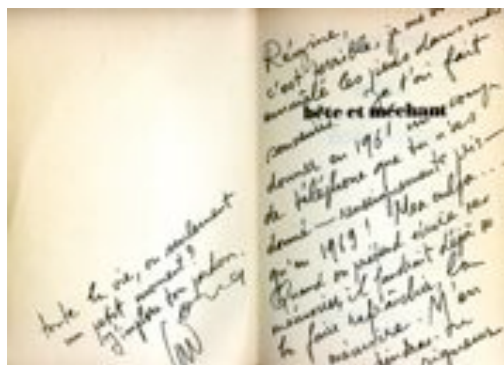 toute la vie, ou seulement
un petit moment?
J'implore ton pardon.
Régine,
c'est terrible, je me suis
emmêlé les pieds dans mes
souvenirs. Je t'ai fait
bête et méchant
donner en 1961 un coup
de téléphone que tu n'as
donné — renseignements pris —
qu'en 1969! Mea culpa...
Quand on prétend écrire ses
mémoires, il faudrait déjà se
la faire rafraîchir, la
mémoire. M'en
rigueur